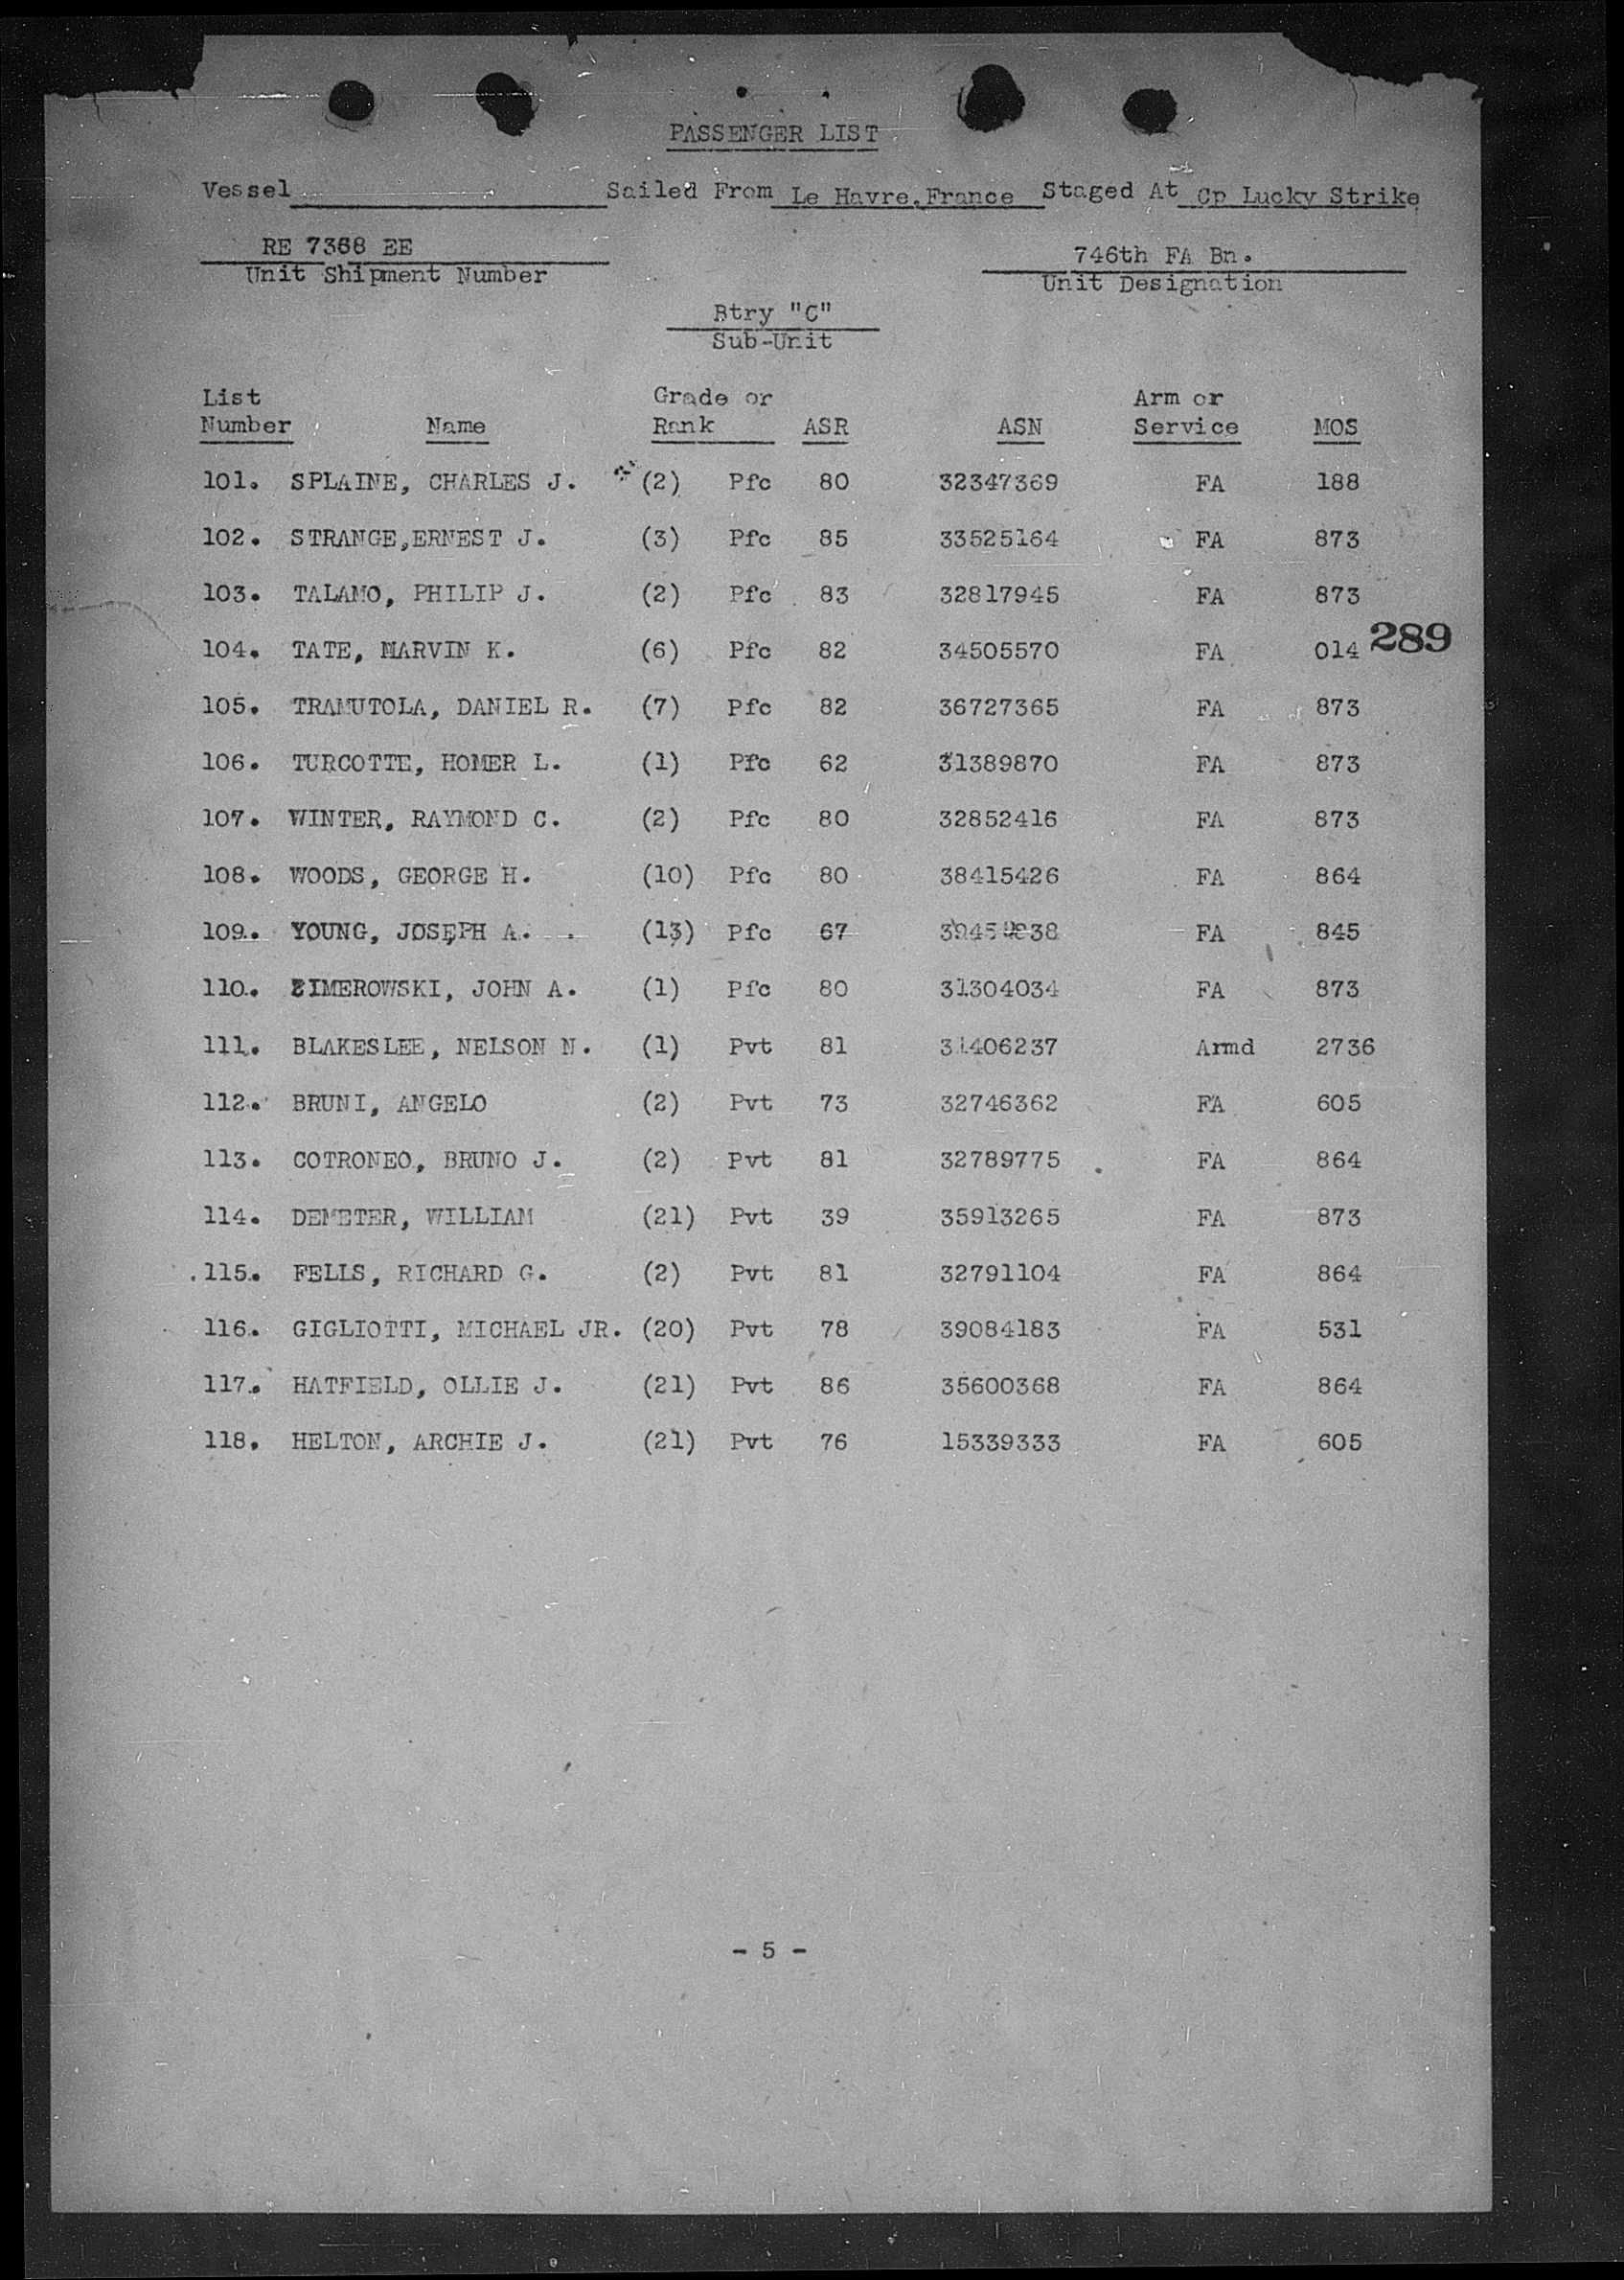 PASSENGER LIST
Vessel Sailed From Le Havre, France Staged At Cp Lucky Strike
RE 7368 EE 746th FA Bn.
Unit Shipment Number Unit Designation
Btry "C"
Sub-Unit
List Grade or Arm or
Number Name Rank ASR ASN Service MOS
101. SPLAINE, CHARLES J. (2) Pfc 80 32347369 FA 188
102. STRANGE, ERNEST J. (3) Pfc 85 33525164 FA 873
103. TALAMO, PHILIP J. (2) Pfc 83 32817945 FA 873
104. TATE, MARVIN K. (6) Pfc 82 34505570 FA 014 289
105. TRAMUTOLA, DANIEL R. (7) Pfc 82 36727365 FA 873
106. TURCOTTE, HOMER L. (1) Pfc 62 31389870 FA 873
107. WINTER, RAYMOND C. (2) Pfc 80 32852416 FA 873
108. WOODS, GEORGE H. (10) Pfc 80 38415426 FA 864
109. YOUNG, JOSEPH A. (13) Pfc 67 FA 845
110. ZIMEROWSKI, JOHN A. (1) Pfc 80 31304034 FA 873
111. BLAKESLEE, NELSON N. (1) Pvt 81 31406237 Armd 2736
112. BRUNI, ANGELO (2) Pvt 73 32746362 FA 605
113. COTRONEO, BRUNO J. (2) Pvt 81 32789775 FA 864
114. DEMETER, WILLIAM (21) Pvt 39 35913265 FA 873
115. FELLS, RICHARD G. (2) Pvt 81 32791104 FA 864
116. GIGLIOTTI, MICHAEL JR. (20) Pvt 78 39084183 FA 531
117. HATFIELD, OLLIE J. (21) Pvt 86 35600368 FA 864
118. HELTON, ARCHIE J. (21) Pvt 76 15339333 FA 605
- 5 -